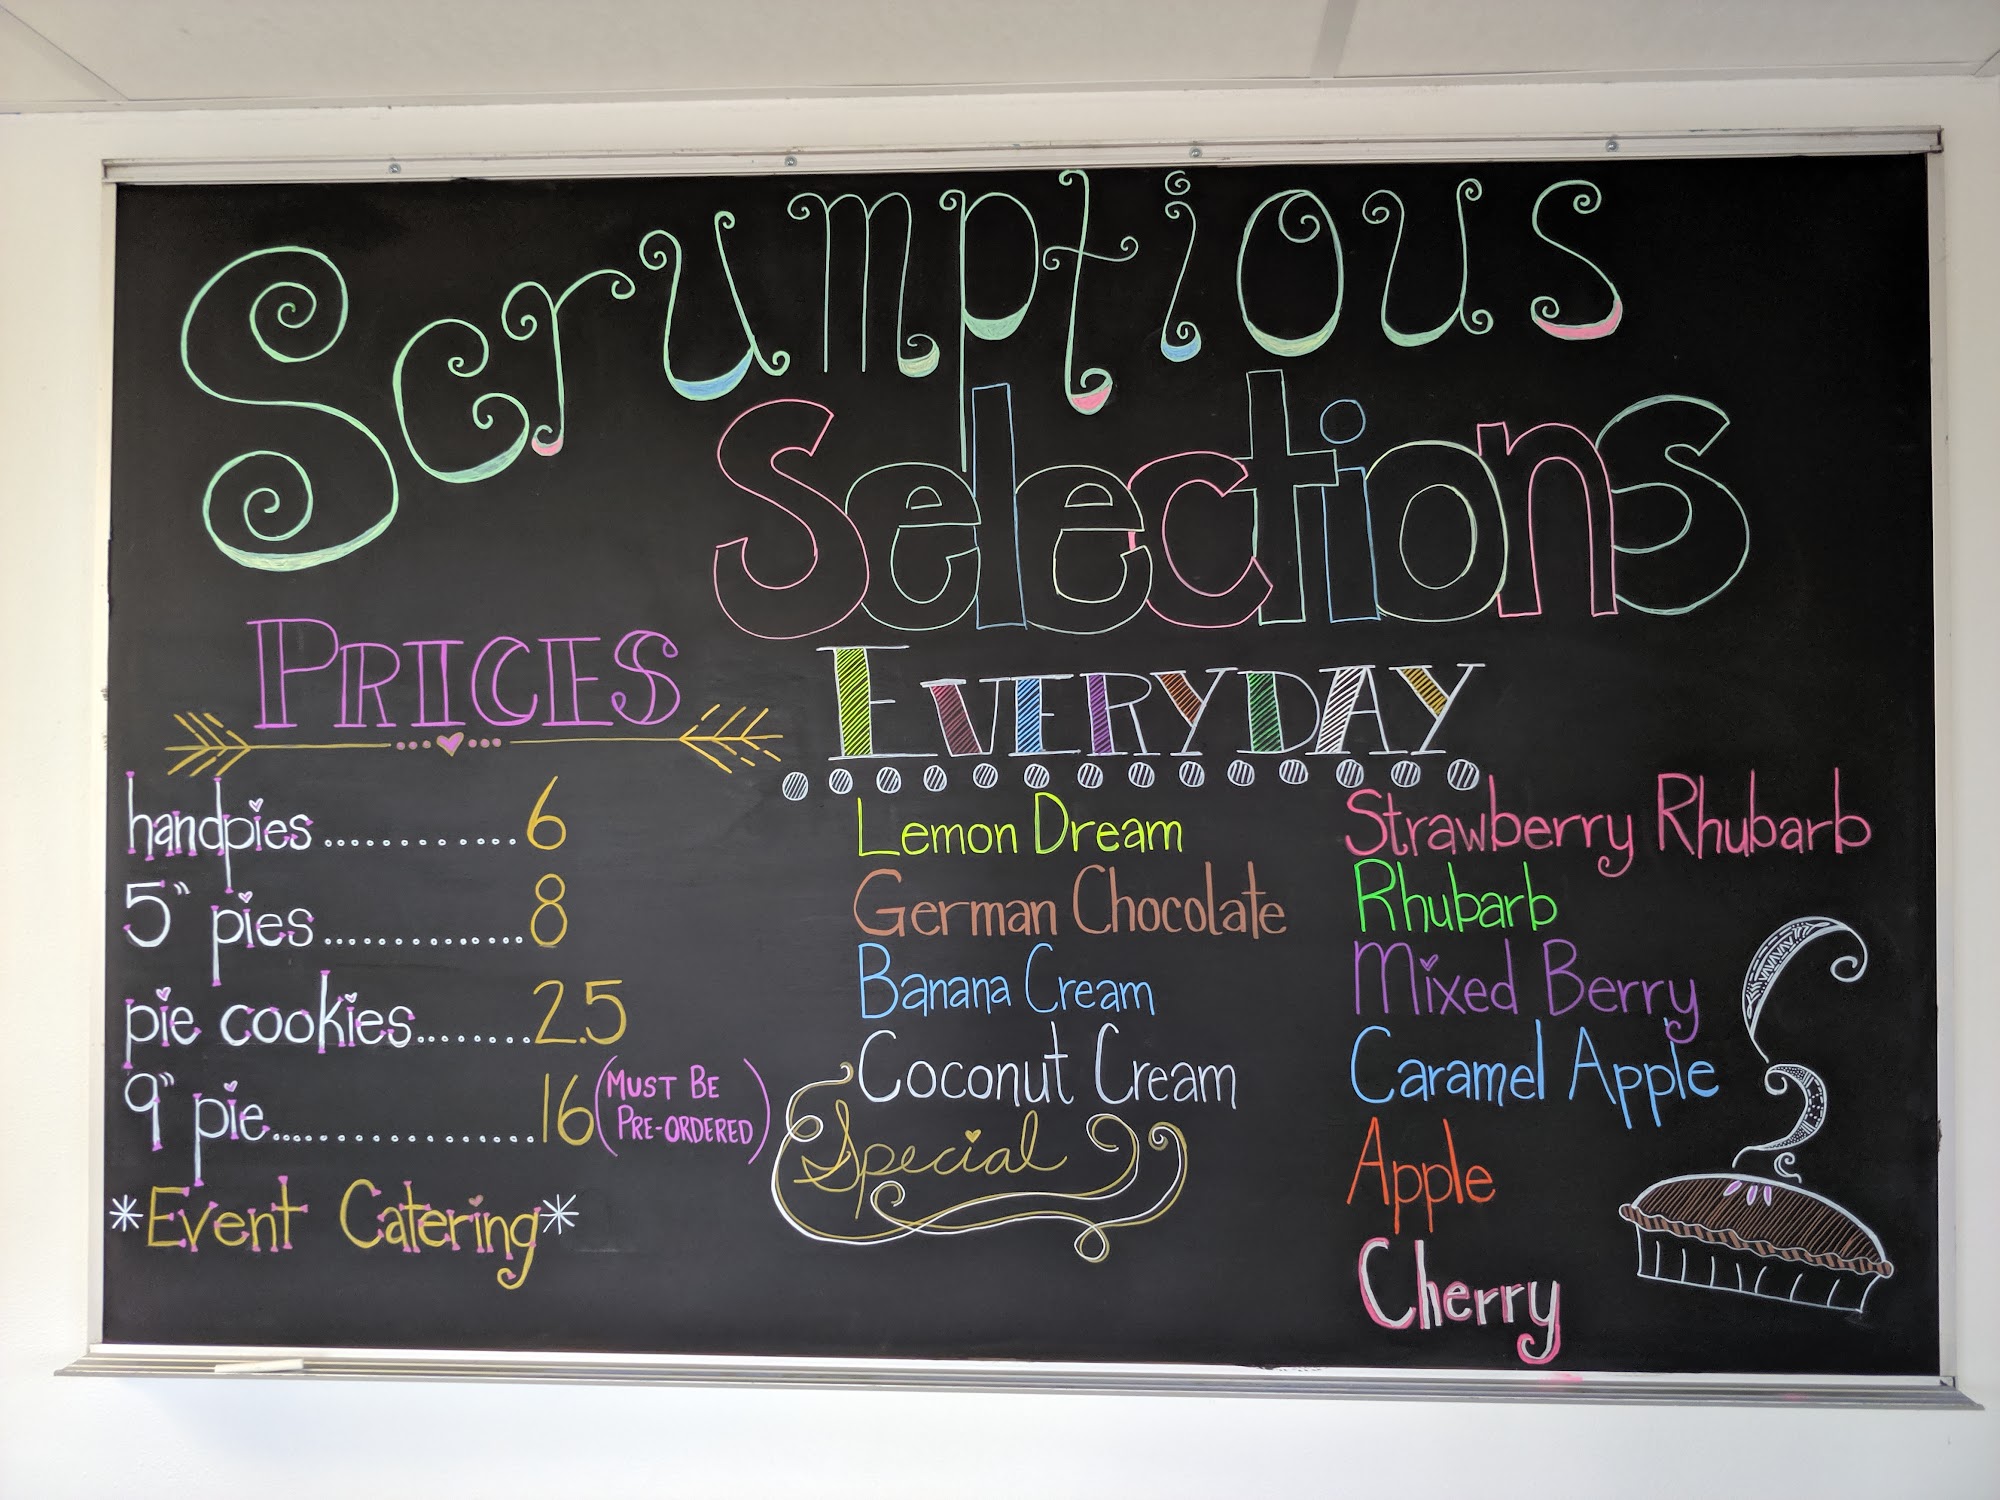 Scrumptious
Selections
PRICES
handpies............6
5" pies..............8
pie cookies........2.5
9" pie................16 (MUST BE
PRE-ORDERED)
*Event Catering*
EVERYDAY
Lemon Dream
German Chocolate
Banana Cream
Coconut Cream
Special
Strawberry Rhubarb
Rhubarb
Mixed Berry
Caramel Apple
Apple
Cherry